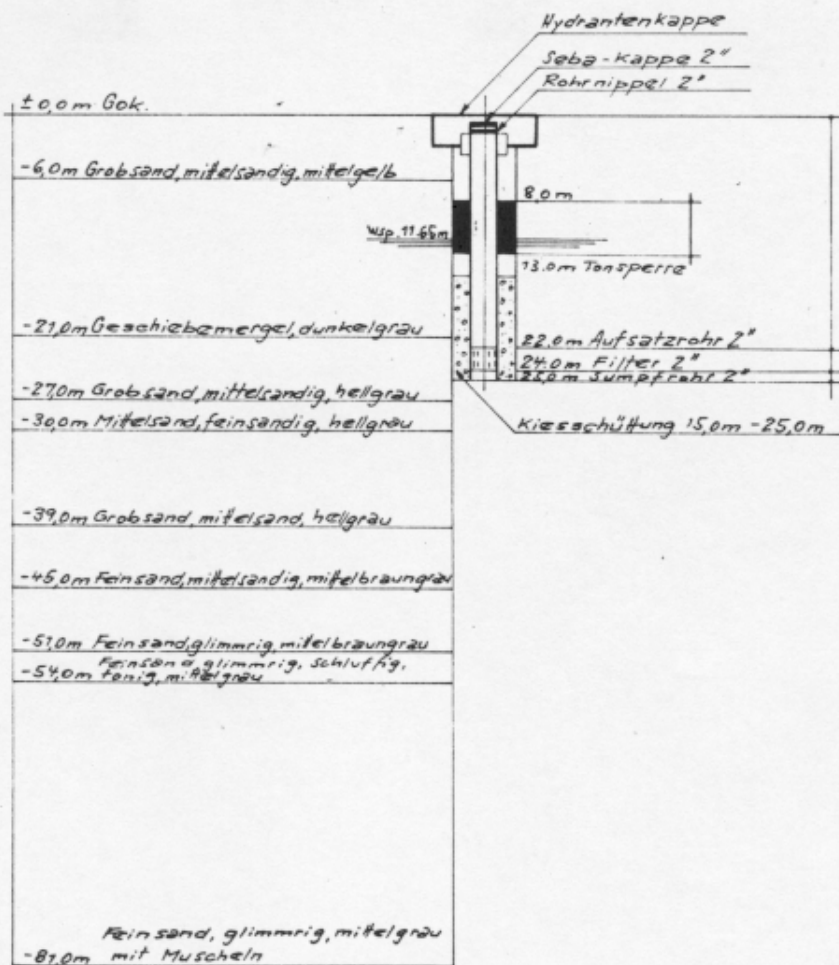 Hydrantenkappe
Seba-Kappe 2"
Rohrnippel 2"
± 0,0 m Gok.
-6,0m Grobsand, mittelsandig, mittelgelb
8,0m
Wsp. 11.65m
13.0m Tonsperre
-21,0m Geschiebemergel, dunkelgrau
22,0m Aufsatzrohr 2"
24.0m Filter 2"
25,0m Sumpfrohr 2"
-27,0m Grobsand, mittelsandig, hellgrau
-30,0m Mittelsand, feinsandig, hellgrau
Kiesschüttung 15,0m - 25,0m
-39,0m Grobsand, mittelsand, hellgrau
-45,0m Feinsand, mittelsandig, mittelbraungrau
-51,0m Feinsand, glimmrig, mittelbraungrau
Feinsand, glimmrig, schluffig,
-54,0m tonig, mittelgrau
Feinsand, glimmrig, mittelgrau
-81,0m mit Muscheln